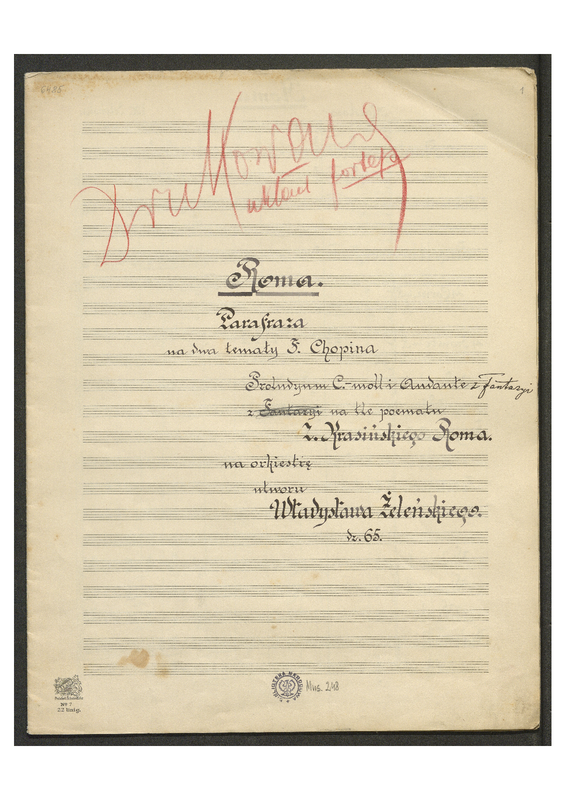 1
Drukowane
układ fortep
Roma.
Parafraza
na dwa tematy F. Chopina
Preludyum C.-moll i Andante z Fantazyi
z Fantazyi na tle poematu
Z. Krasińskiego Roma.
na orkiestrę
utworu
Władysława Żeleńskiego.
dz. 65.
Mus. 248
Nº 7
22 linig.